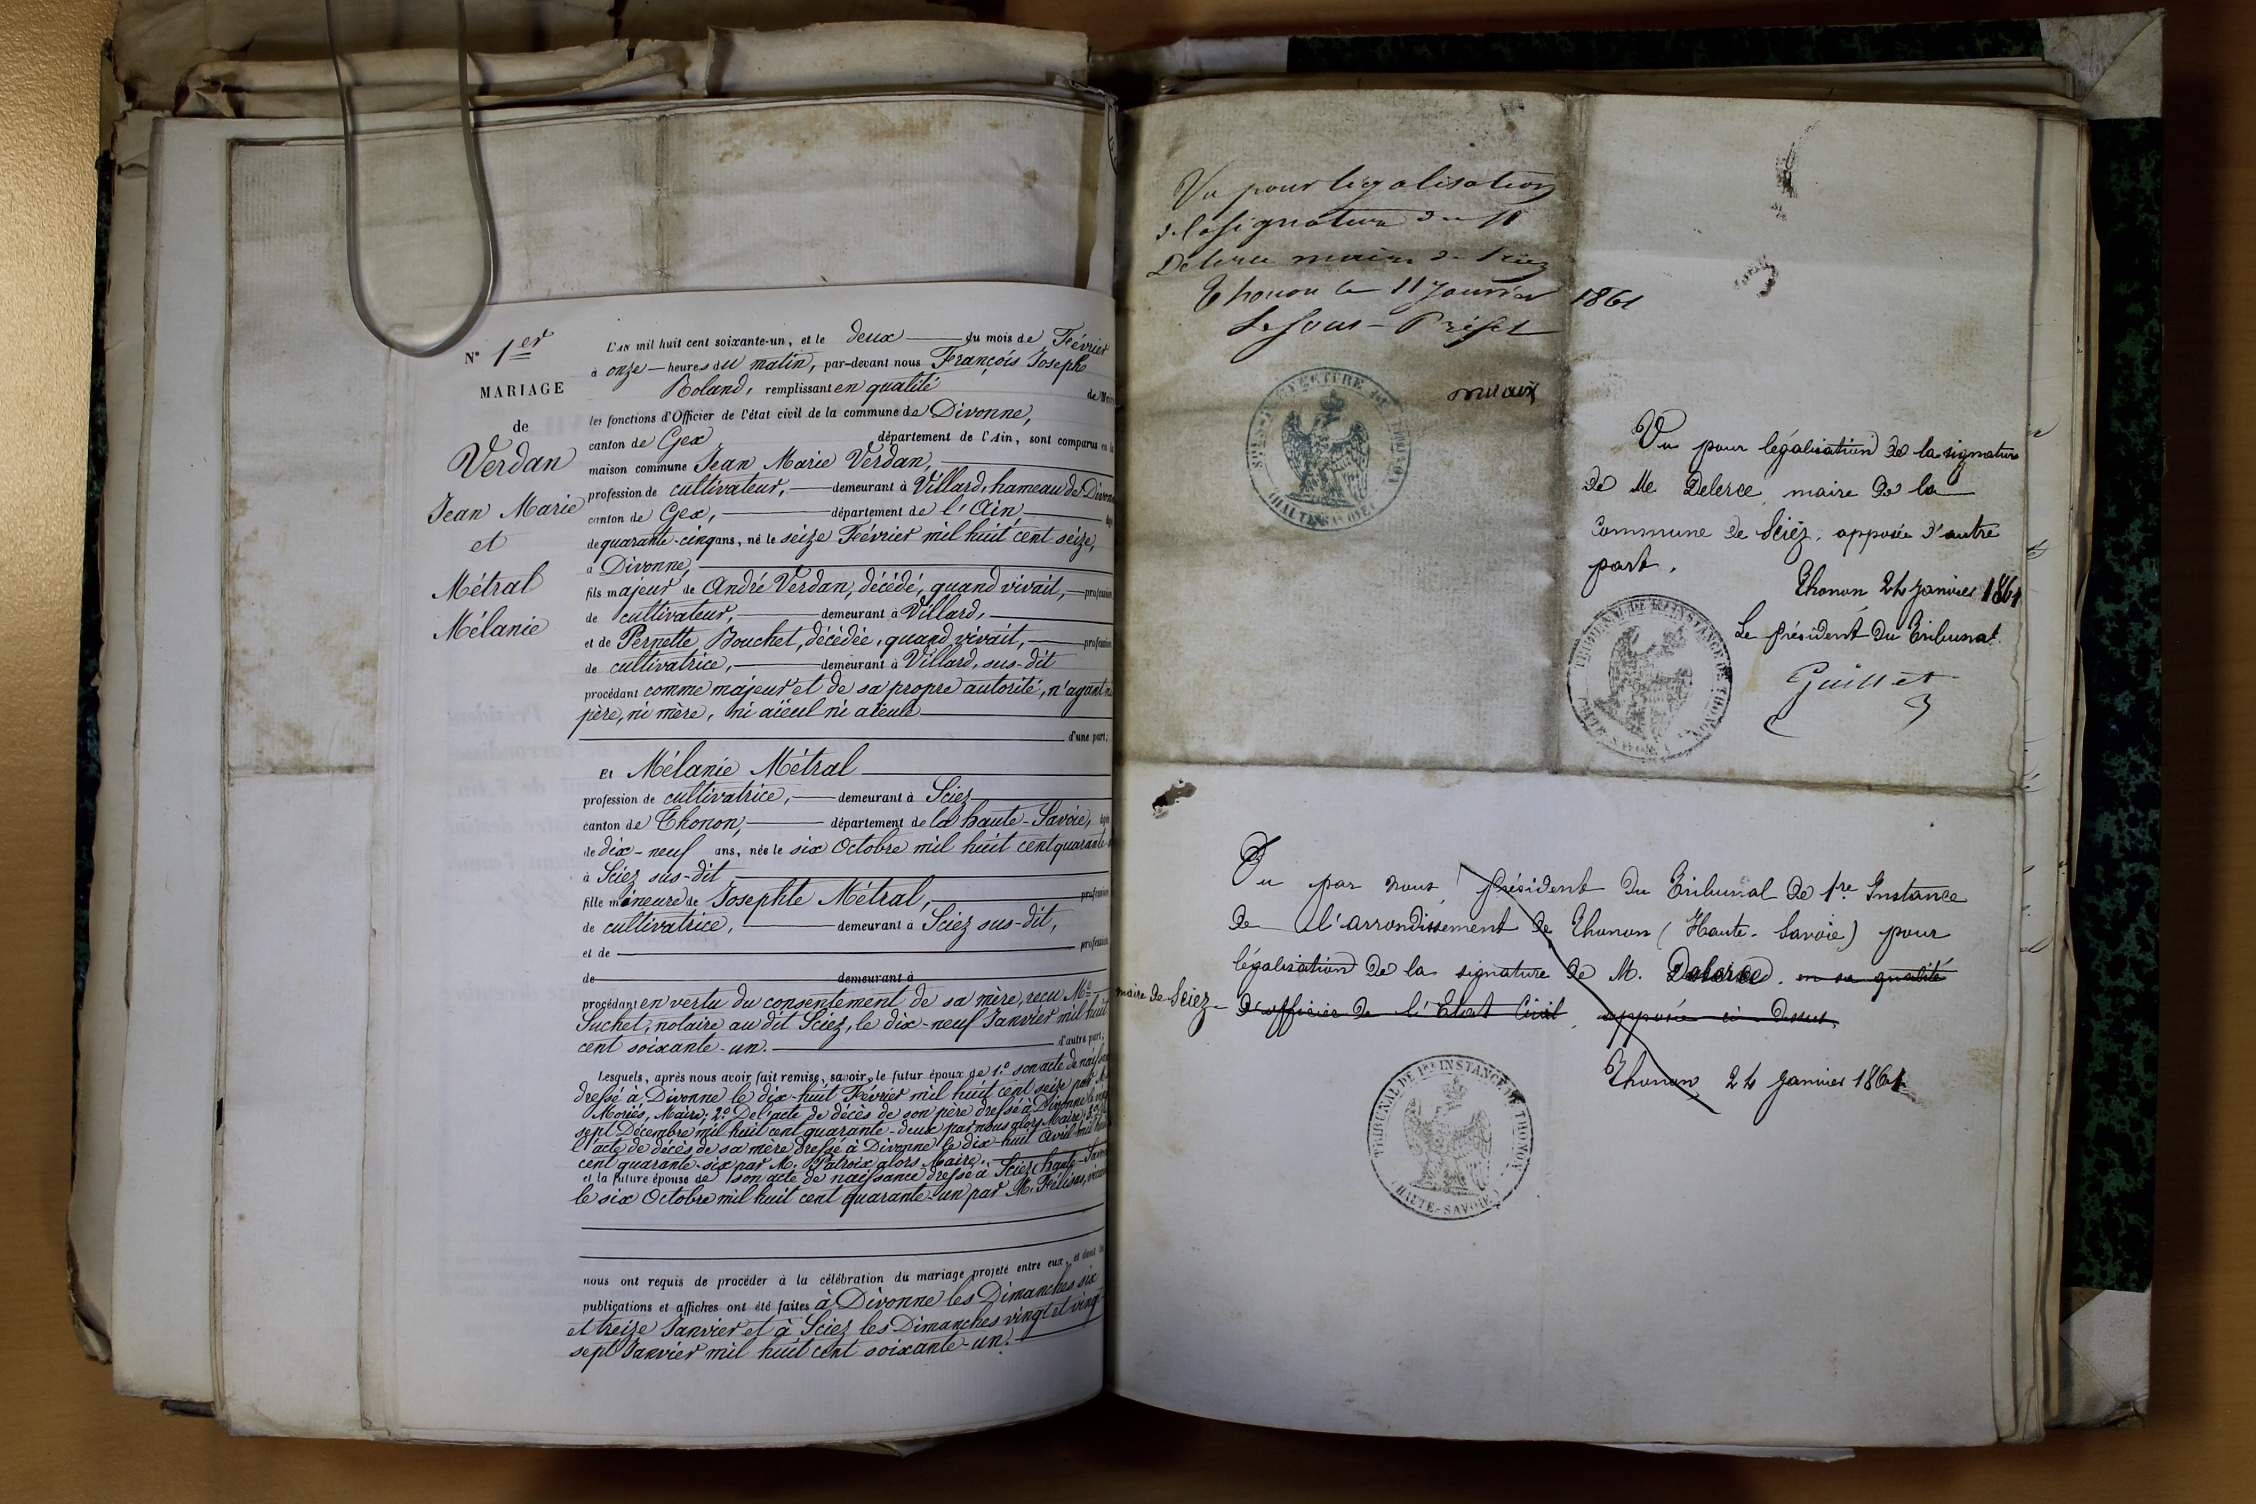 N° 1er
MARIAGE
de
Verdan
Jean Marie
et
Métral
Mélanie
L'AN mil huit cent soixante-un, et le deux du mois de Février
à onze heures du matin, par-devant nous François Joseph
Roland, remplissant en qualité de
les fonctions d'Officier de l'état civil de la commune de Divonne,
canton de Gex département de l'Ain, sont comparus en la
maison commune Jean Marie Verdan,
profession de cultivateur, demeurant à Villard, hameau de Divonne
canton de Gex, département de l'Ain
de quarante-cinq ans, né le seize Février mil huit cent seize,
à Divonne,
fils majeur de André Verdan, décédé, quand vivait, profession
de cultivateur, demeurant à Villard,
et de Pernette Bouchet, décédée, quand vivait, profession
de cultivatrice, demeurant à Villard, sus-dit
procédant comme majeur et de sa propre autorité, n'ayant ni
père, ni mère, ni aïeul ni aïeule
d'une part;
Et Mélanie Métral
profession de cultivatrice, demeurant à Sciez
canton de Thonon, département de la haute-Savoie,
de dix-neuf ans, née le six Octobre mil huit cent quarante
à Sciez sus-dit
fille mineure de Josephte Métral, profession
de cultivatrice, demeurant à Sciez sus-dit,
et de profession
de demeurant à
procédant en vertu du consentement de sa mère, reçu Me
Suchet, notaire au dit Sciez, le dix-neuf Janvier mil huit
cent soixante-un.
d'autre part,
Lesquels, après nous avoir fait remise, savoir, le futur époux de 1° son acte de
dressé à Divonne le dix-huit Février mil huit cent seize par M.
Moriès, Maire; 2° De l'acte de décès de son père dressé à Divonne le
sept Décembre mil huit cent quarante-deux par nous alors Maire;
l'acte de décès de sa mère dressé à Divonne le dix-huit Avril mil
cent quarante-six par M. Patroix alors Maire.
et la future épouse de son acte de naissance dressé à Sciez haute-
le six Octobre mil huit cent quarante-un par M.
nous ont requis de procéder à la célébration du mariage projeté entre eux, et dont les
publications et affiches ont été faites à Divonne les Dimanches six
et treize Janvier et à Sciez les Dimanches vingt et vingt
sept Janvier mil huit cent soixante-un.
Vu pour légalisation
de la signature du M
Delerce maire de Sciez
Thonon le 11 Janvier 1861
Le Sous-Préfet
SOUS-PREFECTURE DE THONON
(HAUTE SAVOIE)
Vu pour légalisation de la signature
de Me Delerce, maire de la
Commune de Sciez, apposée d'autre
part.
Thonon 24 janvier 1861
Le président du Tribunal
Guillet
TRIBUNAL DE 1re INSTANCE DE THONON
(HAUTE-SAVOIE)
Vu par nous président du Tribunal de 1re Instance
de l'arrondissement de Thonon (Haute-Savoie) pour
légalisation de la signature de M. Delerce, en sa qualité
maire de Sciez d'officier de l'Etat Civil, apposée ci-dessus.
Thonon 24 janvier 1861
TRIBUNAL DE 1re INSTANCE DE THONON
(HAUTE-SAVOIE)